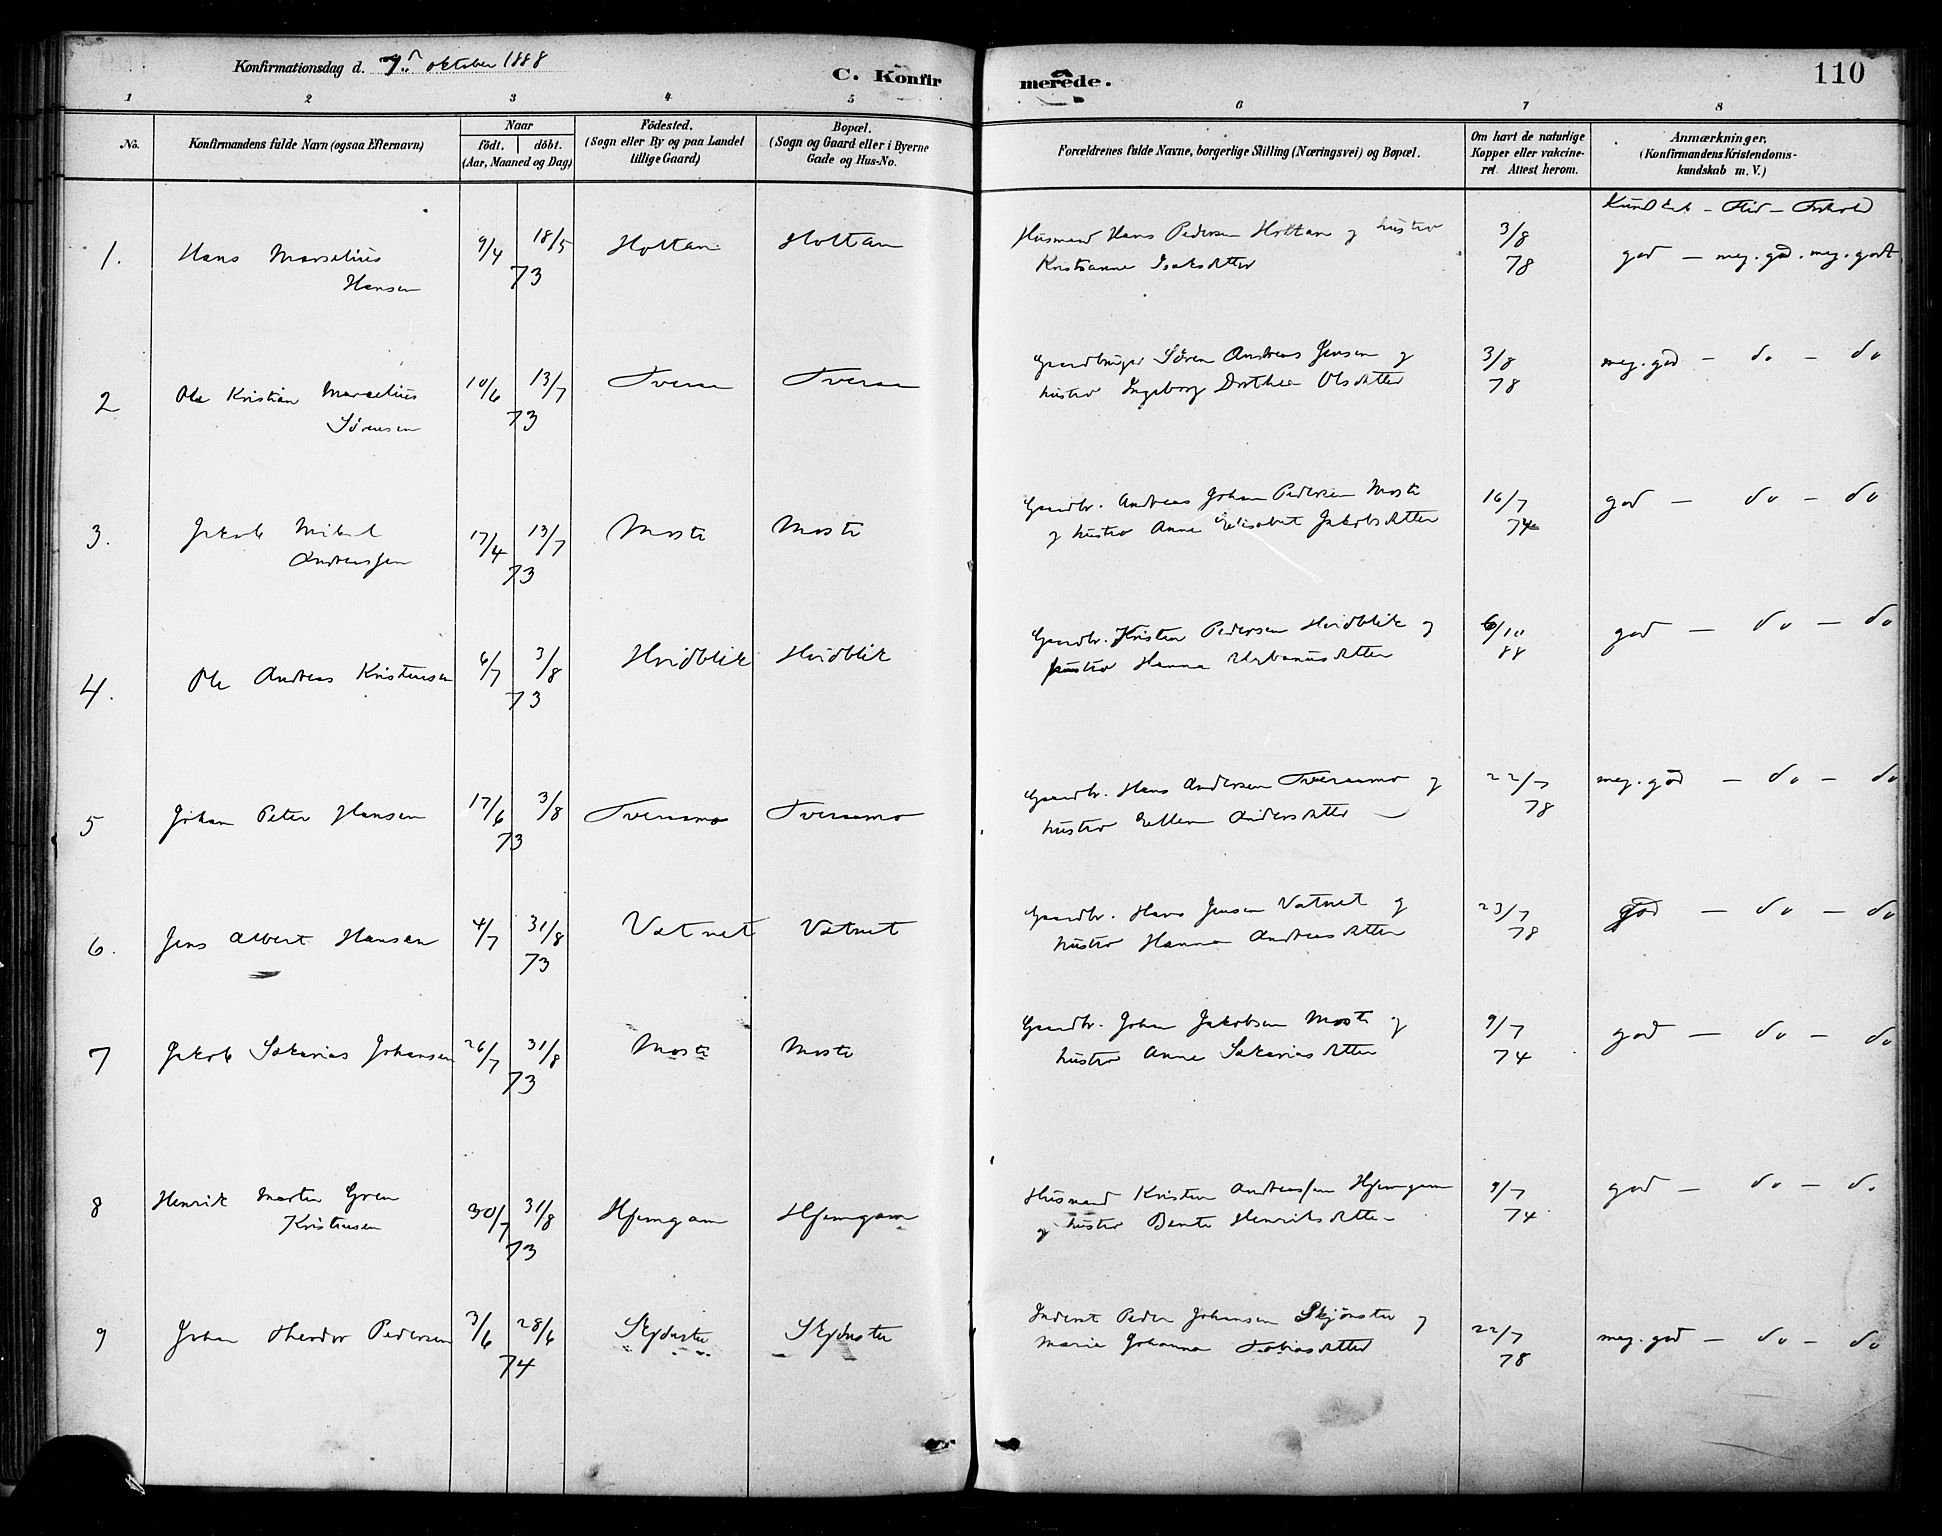 Konfirmationsdag d. 7de oktober 1888
C. Konfirmerede.
110
1 2 3 4 5 6 7 8
No.
Konfirmandens fulde Navn (ogsaa Efternavn)
Naar
födt. döbt.
(Aar, Maaned og Dag)
Födested.
(Sogn eller By og paa Landet
tillige Gaard)
Bopæl.
(Sogn og Gaard eller i Byerne
Gade og Hus-No.
Forældrenes fulde Navne, borgerlige Stilling (Næringsvei) og Bopæl.
Om havt de naturlige
Kopper eller vakcine-
ret. Attest herom.
Anmærkninger,
(Konfirmandens Kristendoms-
kundskab m. V.)
Kundsk - Flid - Forhold
1. Hans Marselius 9/4 18/5 Holtan Holtan Husmand Hans Pedersen Holtan og hustro 3/8 god - meg. god. meg. godt
Hansen 73 Kristianne Isaksdatter 78
2 Ole Kristian Marselius 10/6 13/7 Tveraa Tveraa Gaardbruger Sören Andreas Jensen og 3/8 meg. god - do - do
Sörensen 73 hustro Ingeborg Dorthea Olsdatter 78
3. Jakob Mikal 17/4 13/7 Moste Moste Gaardbr. Andreas Johan Pedersen Moste 16/7 god - do - do
Andreassen 73 og hustro Anne Elisabet Jakobsdatter 74
4. Ole Andreas Kristensen 6/7 3/8 Hvidblik Hvidblik Gaardbr. Kristen Pedersen Hvidblik og 6/10 god - do - do
73 hustro Hanna Urbanusdatter 88
5 Johan Peter Hansen 17/6 3/8 Tveraamo Tveraamo Gaardbr. Hans Andersen Tveraamo og 22/7 meg. god - do - do
73 hustro Ellen Andersdatter 78
6. Jens Albert Hansen 4/7 31/8 Vatnet Vatnet Gaardbr. Hans Jensen Vatnet og 23/7 god - do - do
73 hustro Hanna Andreasdatter 78
7 Jakob Sakarias Johansen 26/7 31/8 Moste Moste Gaardbr. Johan Jakobsen Moste og 9/7 god - do - do
73 hustro Anne Sakariasdatter 74
8 Henrik Martin Gren 30/7 31/8 Hjemgam Hjemgam Husmand Kristen Andreassen Hjemgam 9/7 god - do - do
Kristensen 73 og hustro Bente Henriksdatter 74
9 Johan Theodor Pedersen 3/6 28/6 Skjönstu Skjönstu Inderst Peder Johansen Skjönstu og 22/7 meg. god - do - do
74 Marie Johanna Tobiasdatter 78